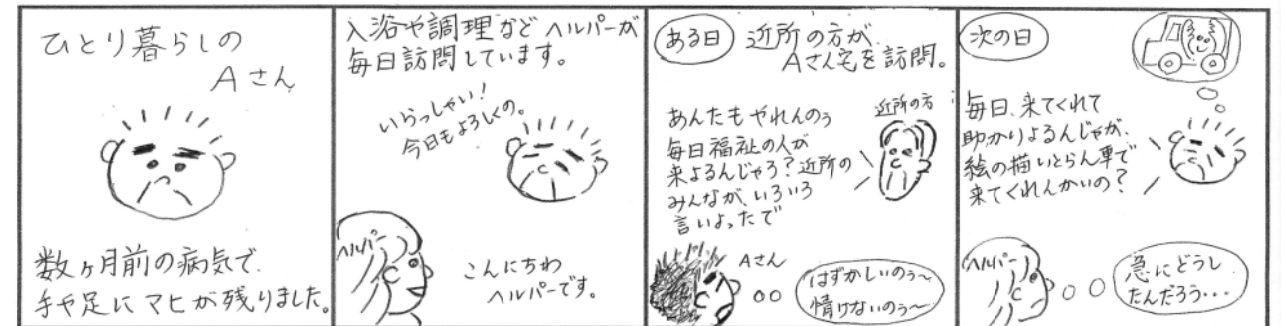 ひとり暮らしの
Aさん
数ヶ月前の病気で
手や足にマヒが残りました。
入浴や調理などヘルパーが
毎日訪問しています。
いらっしゃい!
今日もよろしくの。
ヘルパー
こんにちわ
ヘルパーです。
ある日
近所の方が、
Aさん宅を訪問。
近所の方
あんたもやれんのぅ
毎日福祉の人が
来よるんじゃろ?近所の
みんなが、いろいろ
言いよったで
Aさん
はずかしいのぅ~
情けないのぅ~
次の日
毎日、来てくれて
助かりよるんじゃが、
絵の描いとらん車で
来てくれんかいの?
ヘルパー
急にどうし
たんだろう・・・